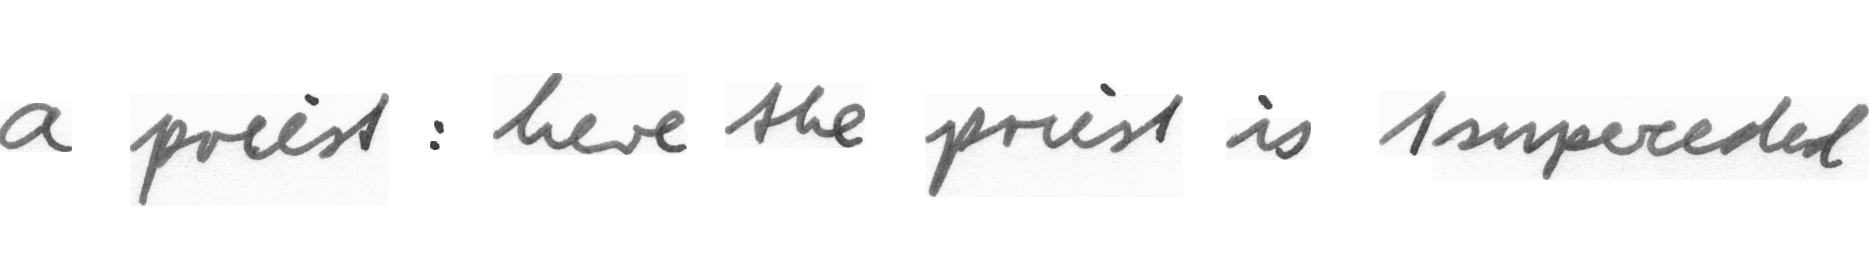 a priest : here the priest is superceded